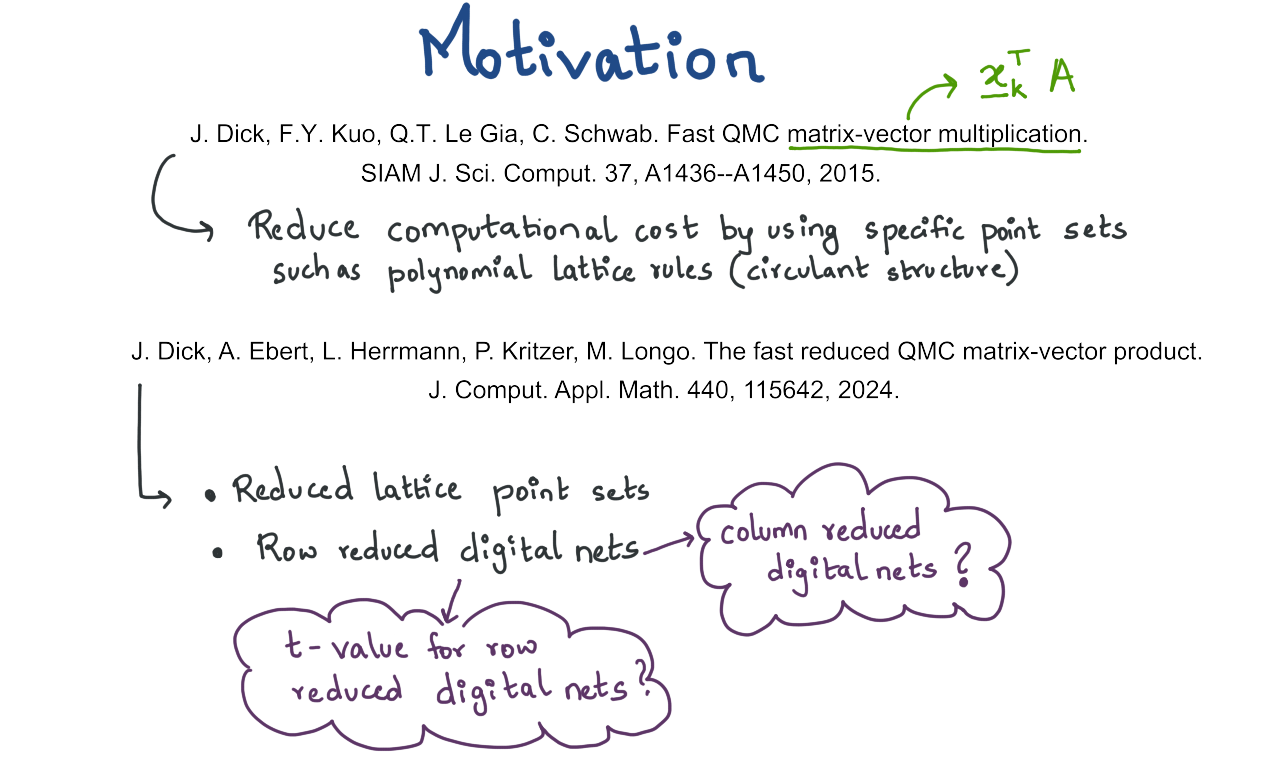 Motivation
x_k^T A
J. Dick, F.Y. Kuo, Q.T. Le Gia, C. Schwab. Fast QMC matrix-vector multiplication.
SIAM J. Sci. Comput. 37, A1436--A1450, 2015.
Reduce computational cost by using specific point sets
such as polynomial lattice rules (circulant structure)
J. Dick, A. Ebert, L. Herrmann, P. Kritzer, M. Longo. The fast reduced QMC matrix-vector product.
J. Comput. Appl. Math. 440, 115642, 2024.
• Reduced lattice point sets
• Row reduced digital nets
column reduced
digital nets ?
t-value for row
reduced digital nets?